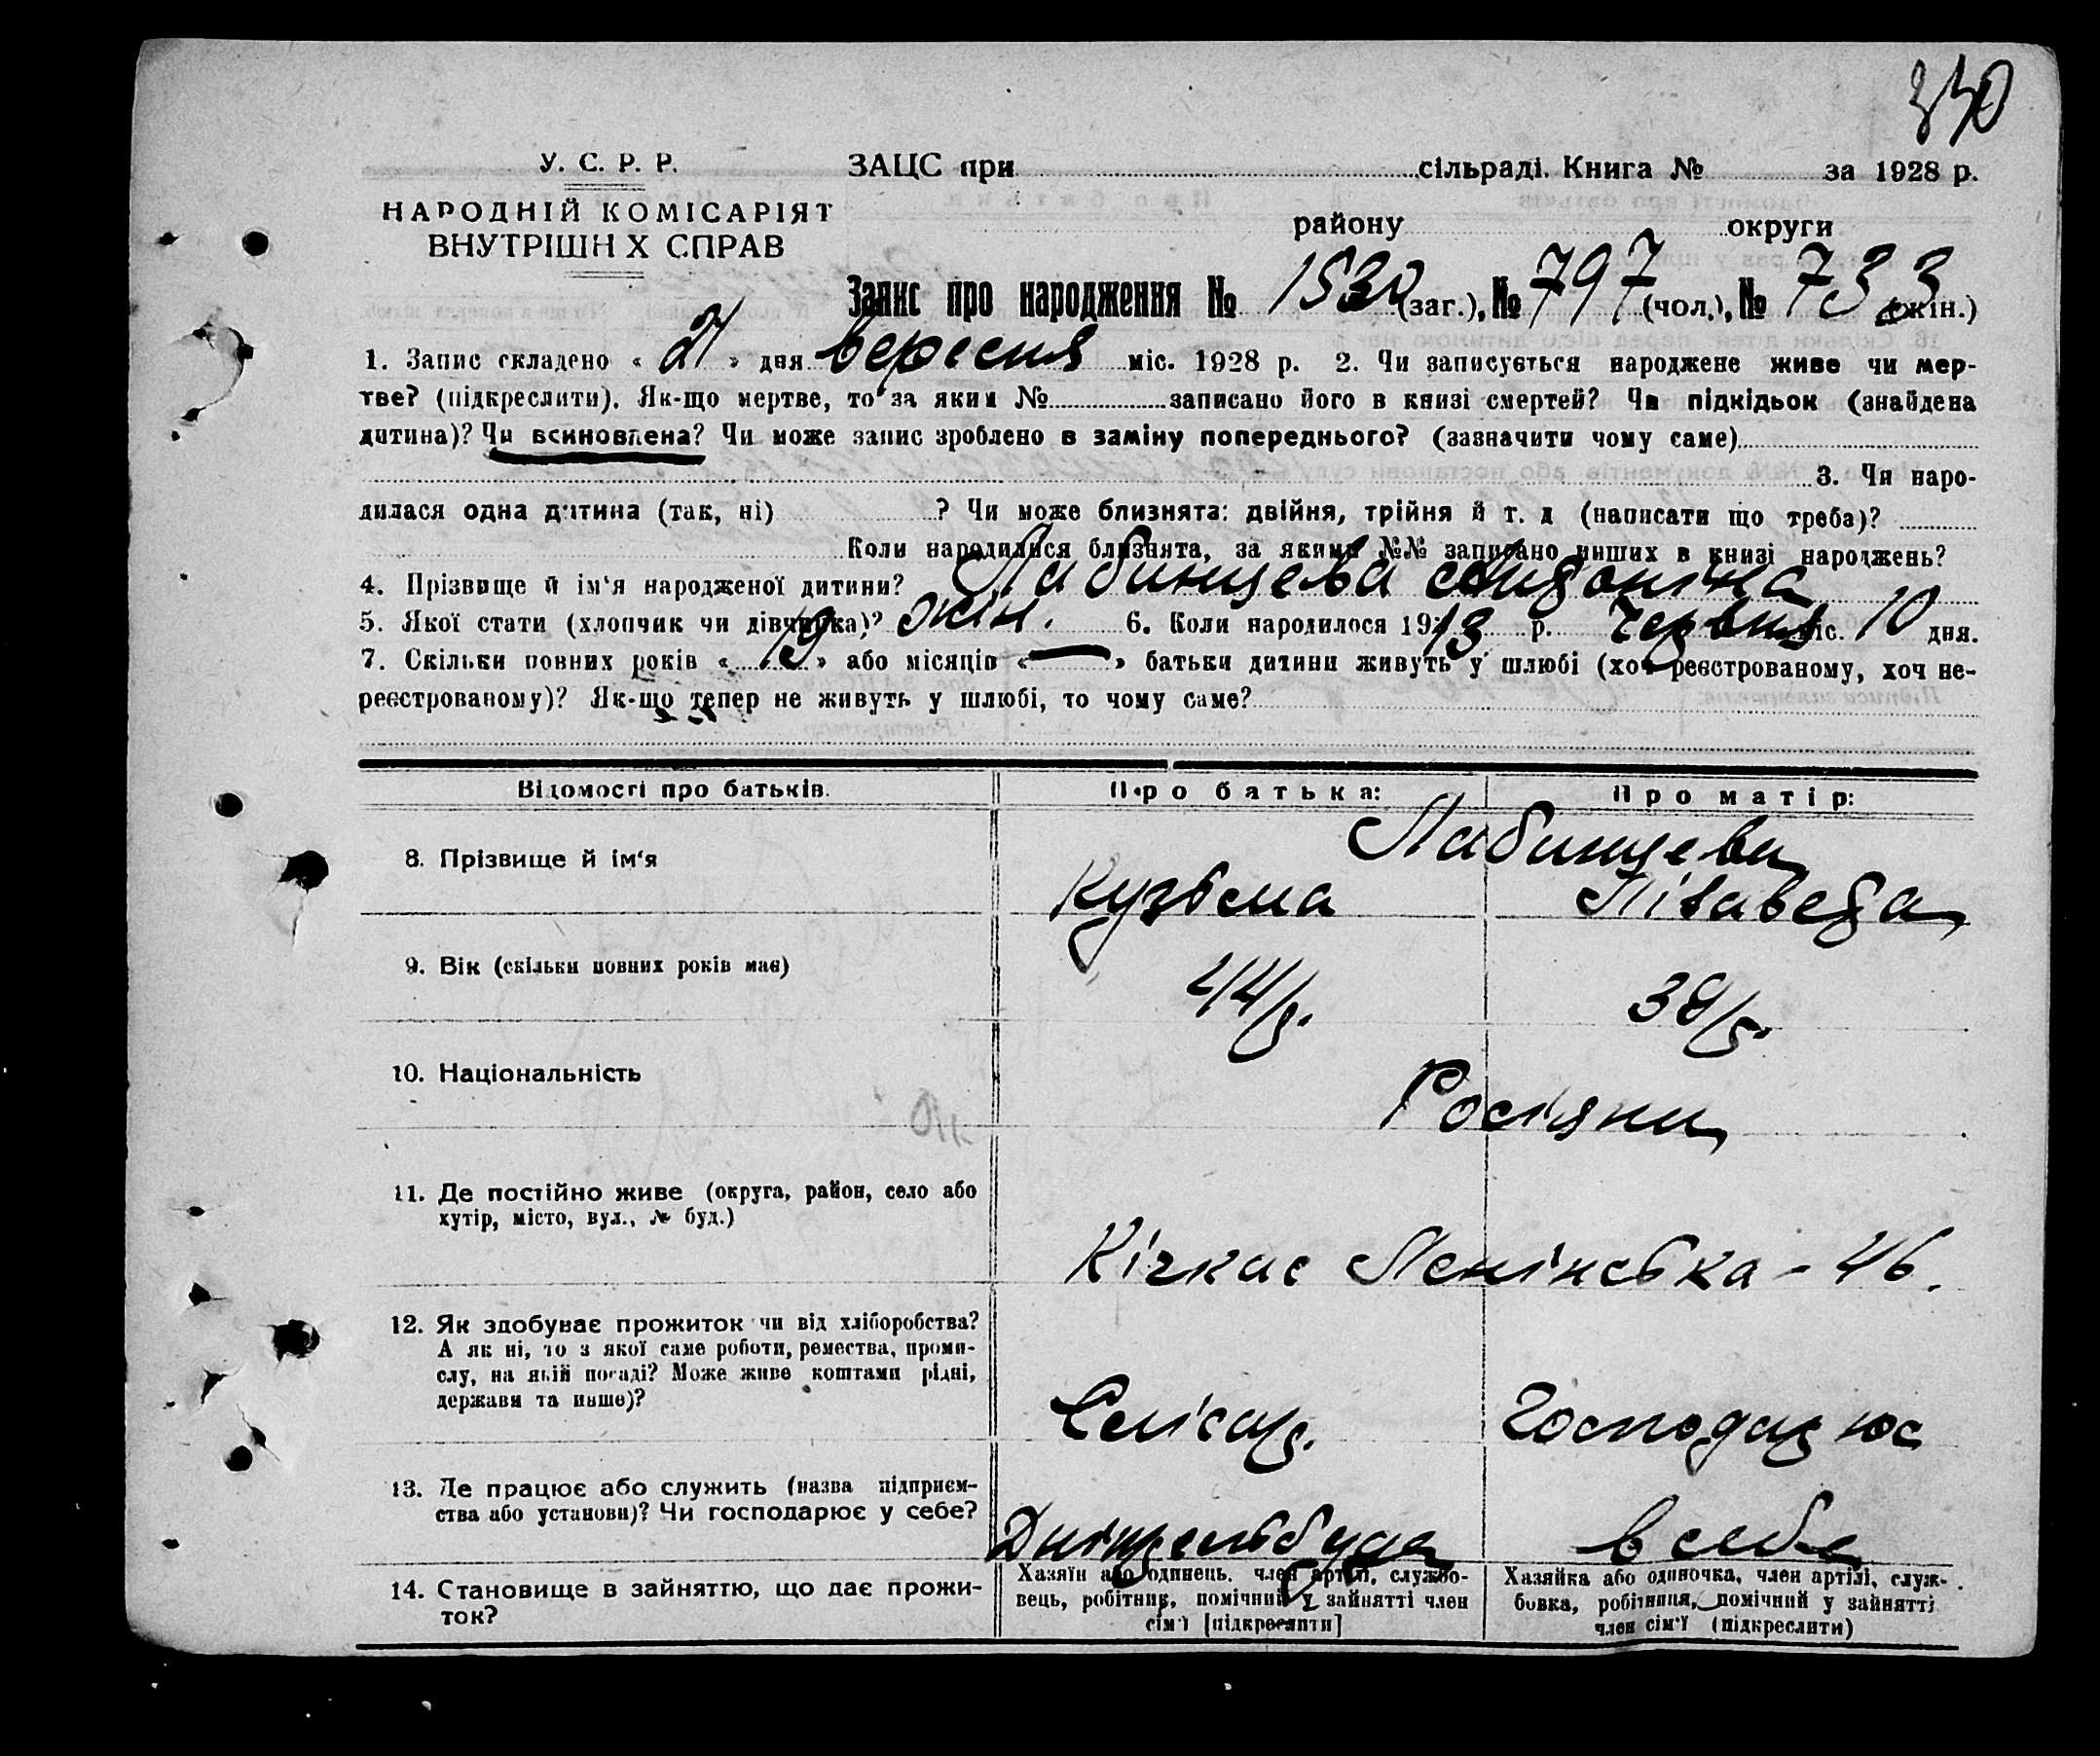 340
У. С. Р. Р.
ЗАЦС при сільраді. Книга № за 1928 р.
НАРОДНІЙ КОМІСАРІЯТ
ВНУТРІШН Х СПРАВ
району округи
Запис про народження № 1530 (заг.), № 797 (чол.), № 733 (жін.)
1. Запис складено « 21 » дня вересня міс. 1928 р. 2. Чи записується народжене живе чи мер-
тве? (підкреслити). Як-що мертве, то за яким № записано його в книзі смертей? Чи підкідьок (знайдена
дитина)? Чи всиновлена? Чи може запис зроблено в заміну попереднього? (зазначити чому саме)
3. Чи наро-
дилася одна дитина (так, ні) ? Чи може близнята: двійня, трійня й т. д (написати що треба)?
Коли народилися близнята, за якими №№ записано инших в книзі народжень?
4. Прізвище й ім'я народженої дитини? Лабинцева
5. Якої стати (хлопчик чи дівчинка)? жін. 6. Коли народилося 1913 р. червня міс. 10 дня.
7. Скільки повних років « 19 » або місяців « — » батьки дитини живуть у шлюбі (хоч реєстрованому, хоч не-
реєстрованому)? Як-що тепер не живуть у шлюбі, то чому саме?
Відомості про батьків.
Про батька:
Про матір:
8. Прізвище й ім'я
Лабинцеви
Кузьма
Лізаведа
9. Вік (скільки повних років має)
44/р.
38/р.
10. Національність
Росіяни
11. Де постійно живе (округа, район, село або
хутір, місто, вул., № буд.)
Кічкас Ленінська - 46.
12. Як здобуває прожиток чи від хліборобства?
А як ні, то з якої саме роботи, ремества, проми-
слу, на якій посаді? Може живе коштами рідні,
держави та инше)?
13. Де працює або служить (назва підприєм-
ства або установи)? Чи господарює у себе?
в себе
14. Становище в зайняттю, що дає прожи-
ток?
Хазяїн або одинець, член артілі, службо-
вець, робітник, помічний у зайнятті член
сім'ї [підкреслити]
Хазяйка або одиночка, член артілі, служ-
бовка, робітниця, помічний у зайнятті
член сім'ї (підкреслити)